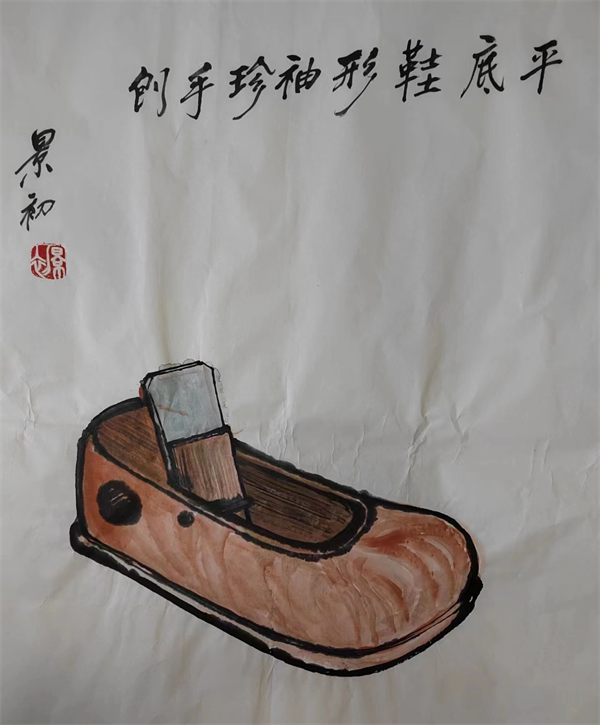 平底鞋形袖珍手刨
景初
景初